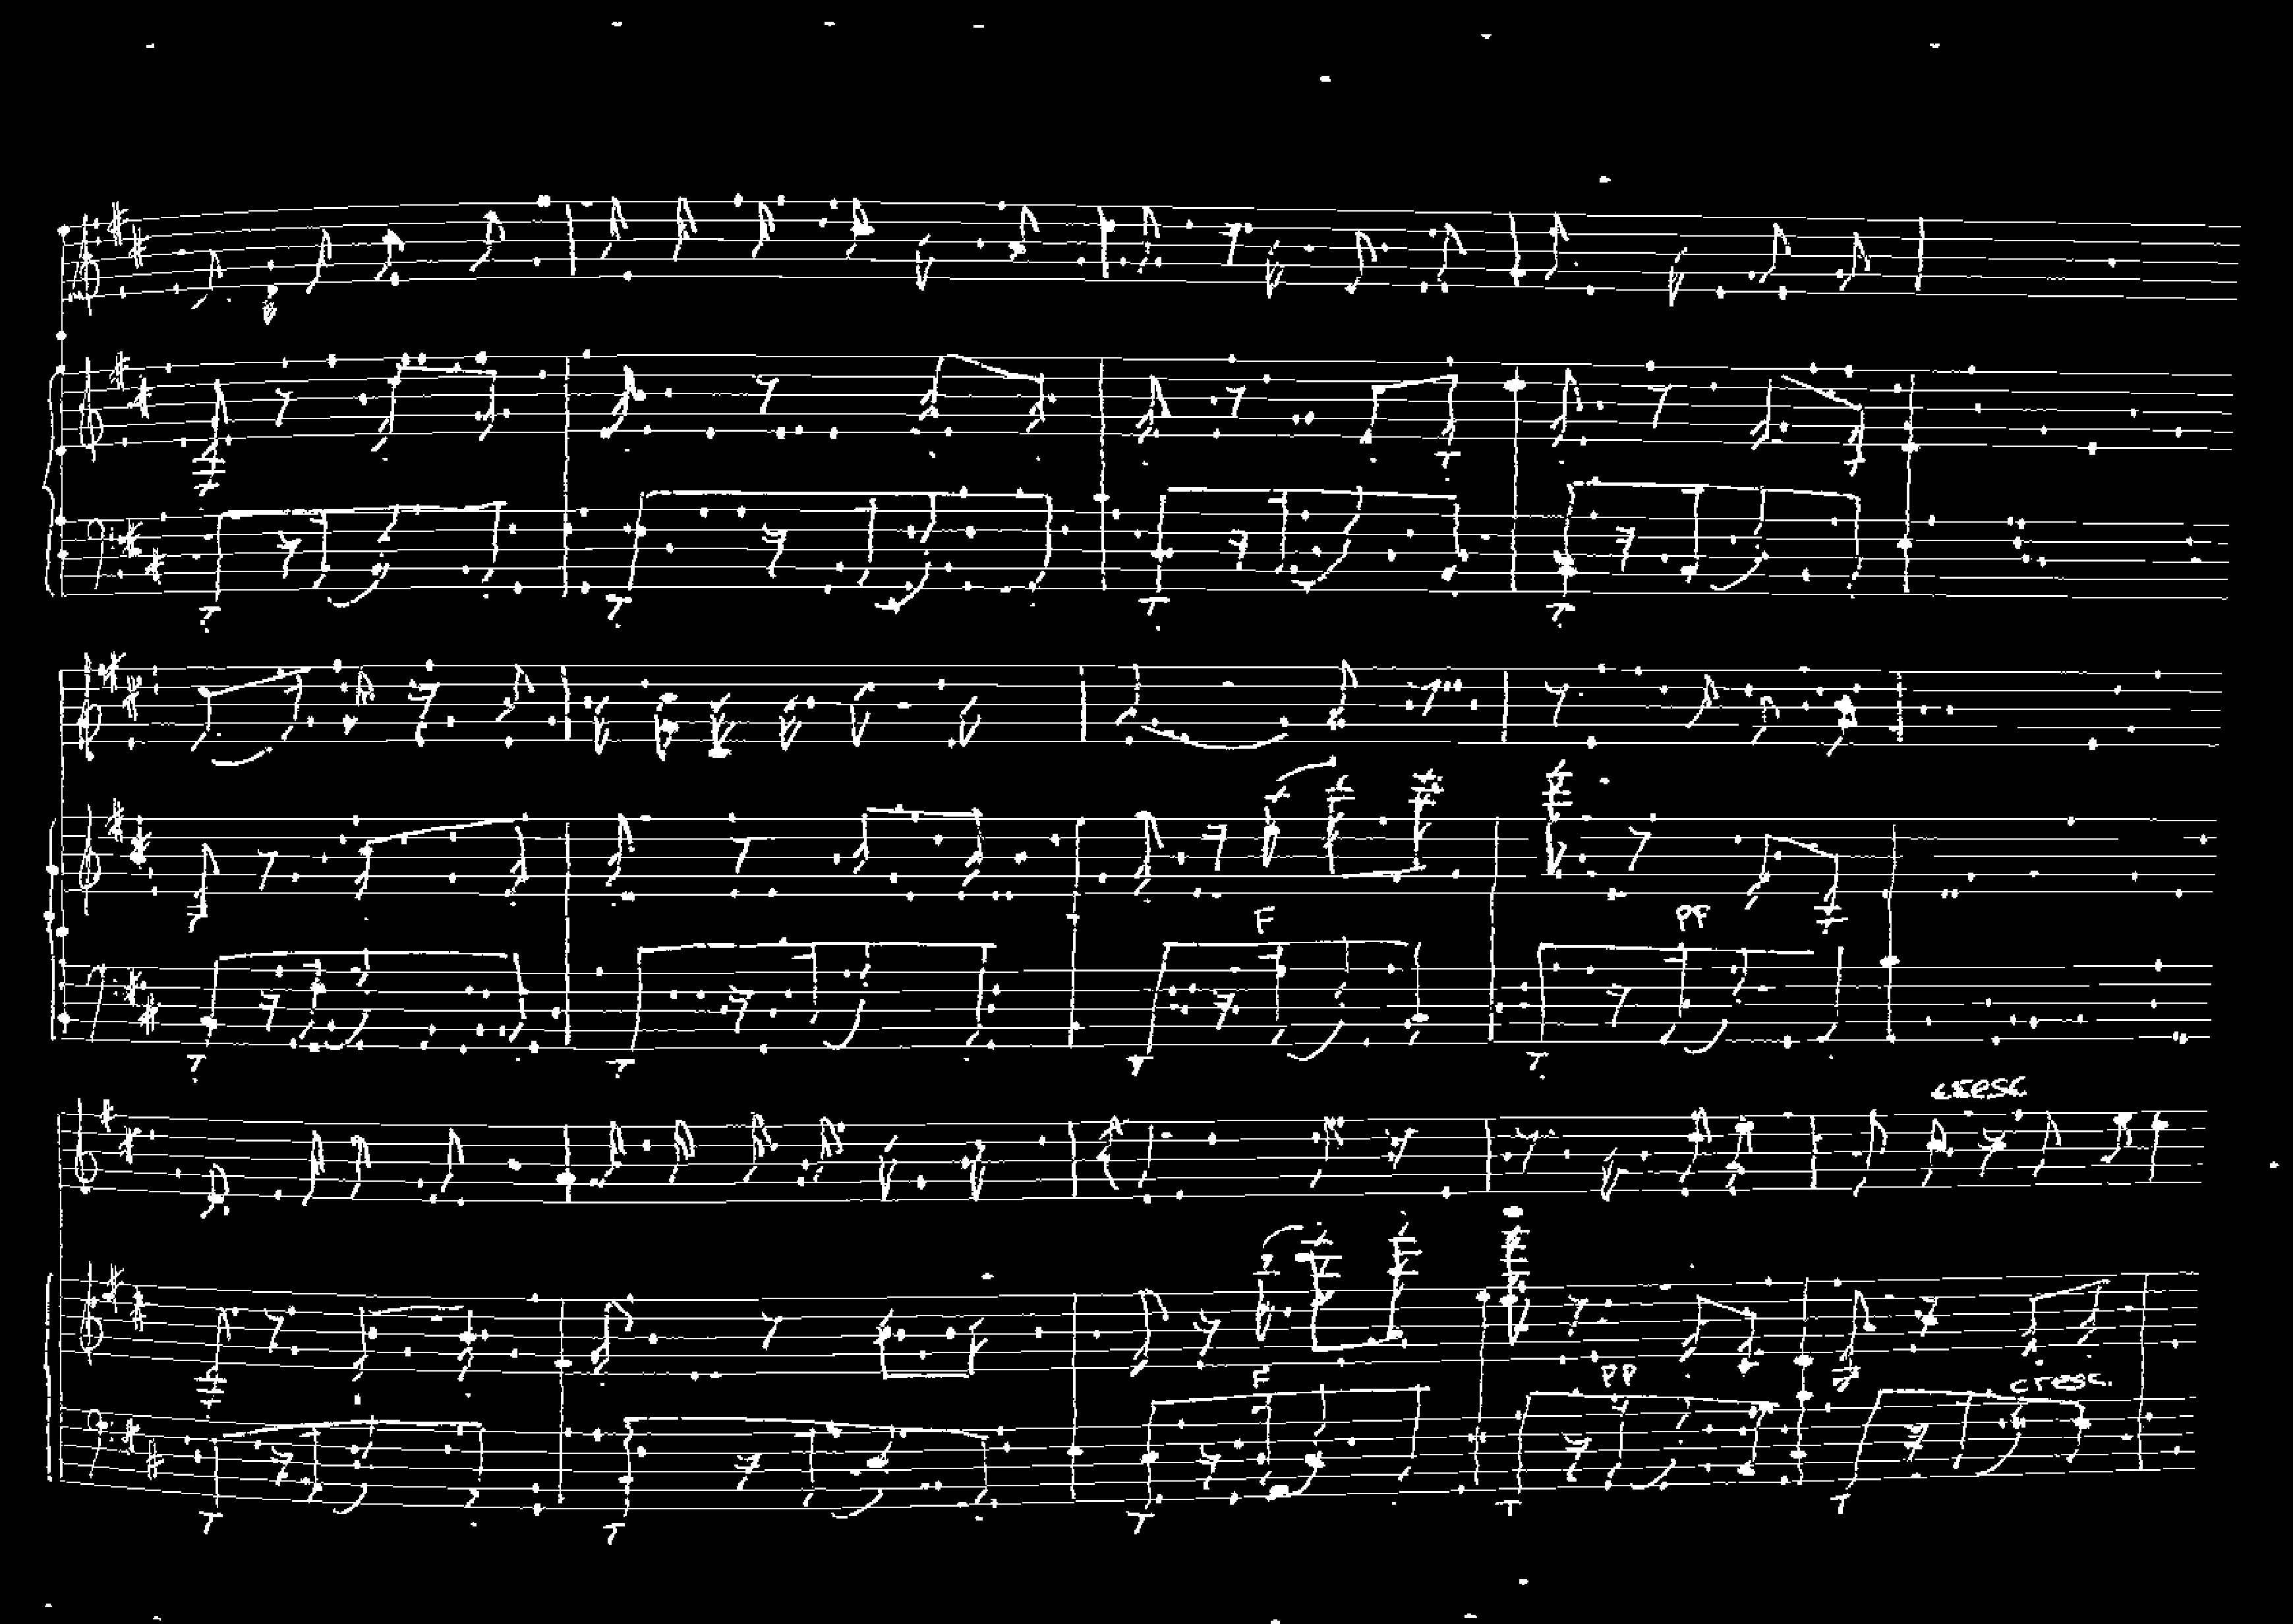 F
PF
cresc
F
PP
cresc.